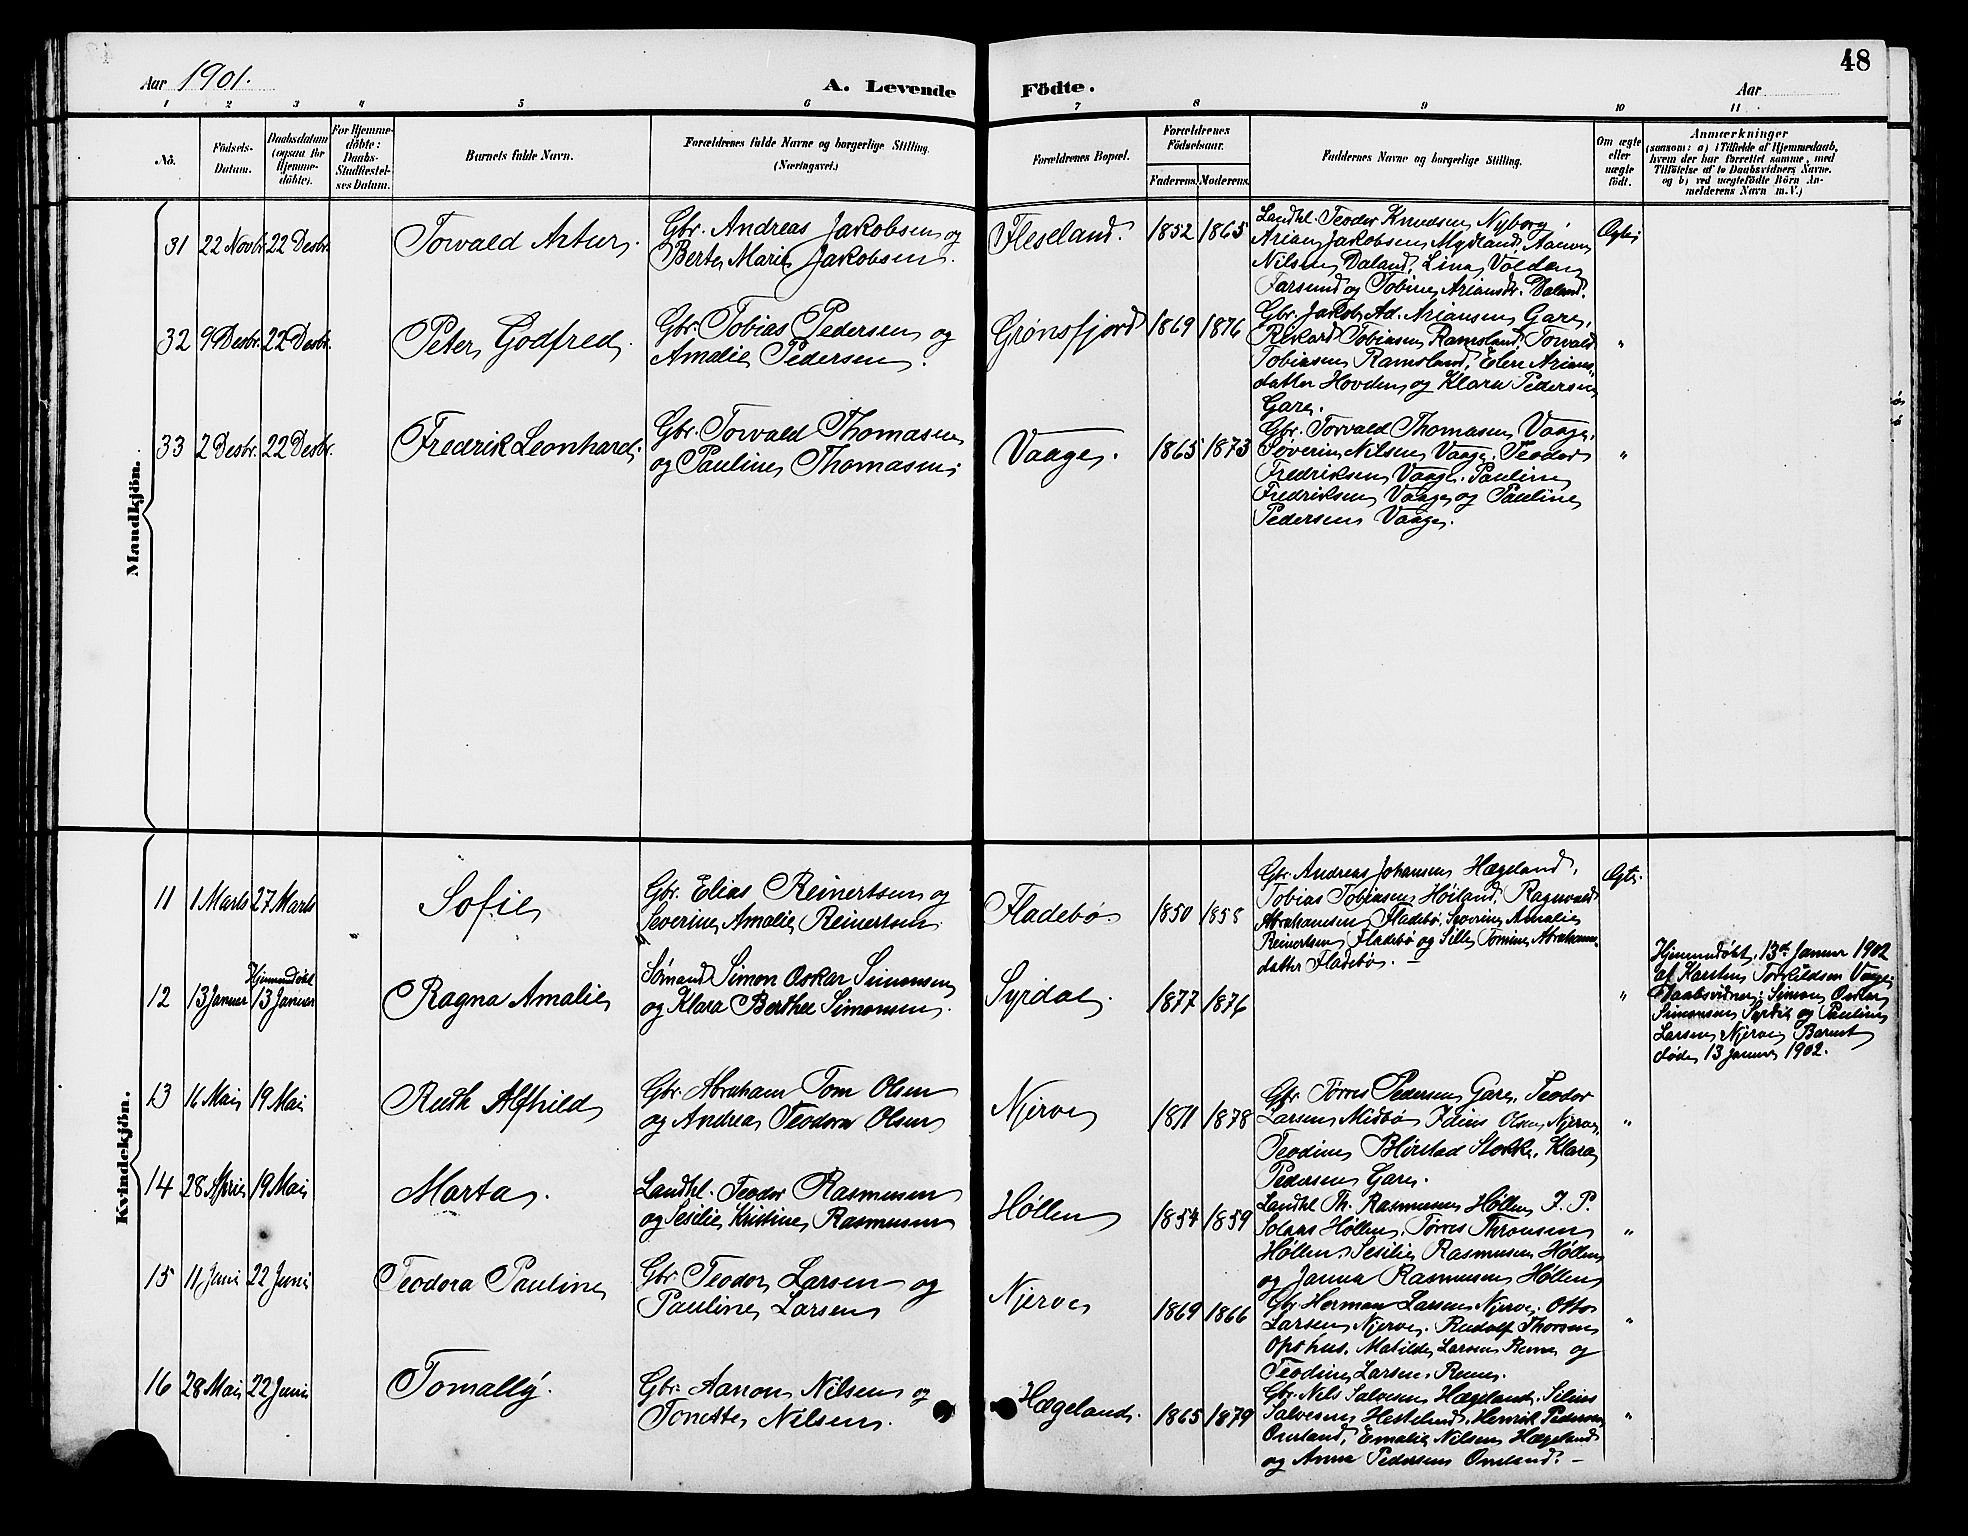 48
Aar 1901.
A. Levende Födte.
Aar
1 2 3 4 5 6 7 8 9 10 11
No.
Födsels-Datum.
Daabsdatum (ogsaa for Hjemme-döbte).
For Hjemme-döbte: Daabs-Stadfæstel-ses Datum.
Barnets fulde Navn.
Forældrenes fulde Navne og borgerlige Stilling.
(Næringsvei.)
Forældrenes Bopæl.
Forældrenes Födselsaar.
Faderens. Moderens.
Faddernes Navne og borgerlige Stilling.
Om ægte eller uægte födt.
Anmærkninger
(saasom: a) i Tilfælde af Hjemmedaab,
hvem der har forrettet samme, med
Tilföielse af to Daabsvidners Navne.
og b) ved uægtefödte Börn An-
melderens Navn m.V.)
Mandkjön.
31 22 Novbr. 22 Desbr.
Torvald Artur.
Gbr. Andreas Jakobsen og
Berte Marie Jakobsen.
Fleseland.
1852 1865
Landhl. Teodor Knudsen Nyborg,
Arian Jakobsen Mydland, Aanon
Nilsen Daland, Lina Volden
Farsund og Tobine Ariansdr. Daland.
Ægte
32 9 Desbr. 22 Desbr.
Peter Godfred.
Gbr. Tobias Pedersen og
Amalie Pedersen.
Grønsfjord
1869 1876
Gbr. Jakob Ad. Ariansen Gare,
Rikard Tobiasen Ramsland, Torvald
Tobiasen Ramsland, Elen Arians-
datter Hovden og Klara Pedersen
Gare.
"
33 2 Desbr. 22 Desbr.
Fredrik Leonhard.
Gbr. Torvald Thomasen
og Pauline Thomasen.
Vaage.
1865 1873
Gbr. Torvald Thomasen Vaage,
Søverin Nilsen Vaage, Teodor
Fredriksen Vaage, Pauline
Fredriksen Vaage og Pauline
Pedersen Vaage.
"
Kvindekjön.
11 1 Marts 27 Marts
Sofie
Gbr. Elias Reinertsen og
Severine Amalie Reinertsen.
Fladebø
1850 1858
Gbr. Andreas Johansen Hægeland,
Tobias Tobiasen Høiland, Ragnvald
Abrahamsen Fladebø, Severine Amalie
Reinertsen Fladebø og Sille Tomine Abrahams-
datter Fladebø.
Ægte
12 13 Januar Hjemmedøbt 13 Januar
Ragna Amalie
Sømand Simon Oskar Simonsen
og Klara Berthee Simonsen.
Syrdal.
1877 1876
"
Hjemmedøbt 13de Januar 1902
af Karsten Torkildsen Vaage
Daabsvidner: Simon Oskar
Simonsen Syrdal og Pauline
Larsen Njerve Barnet
døde 13 Januar 1902.
13 16 Mai 19 Mai
Ruth Alfhild
Gbr. Abraham Tom Olsen
og Andrea Teodora Olsen
Njerve
1871 1878
Gbr. Tørres Pedersen Gare, Teodor
Larsen Midbø Idius Olsen Njerve,
Teodine Blørstad Stokke, Klara
Pedersen Gare.
"
14 28 April 19 Mai
Marta.
Landhl. Teodor Rasmusen
og Sesilie Kristine Rasmusen
Høllen
1854 1859
Landhl Th. Rasmusen Høllen J. P.
Solaas Høllen, Tørres Theonsen
Høllen, Sesilie Rasmusen Høllen
og Janna Rasmusen Høllen
"
15 11 Juni 22 Juni
Teodora Pauline
Gbr. Teodor Larsen og
Pauline Larsen
Njerve
1869 1866
Gbr Herman Larsen Njerve, Otto
Larsen Njerve. Rudolf Thorsen
Opshus. Matilde Larsen Rume og
Teodine Larsen Rume.
"
16 28 Mai 22 Juni
Tomally.
Gbr. Aanon Nilsen og
Tonette Nilsen.
Hægeland.
1865 1879
Gbr. Nils Salvesen Hægeland, Silius
Salvesen Hesteland, Henrik Pedersen
Omland, Emalie Nilsen Hægeland
og Anna Pedersen Omland.
"